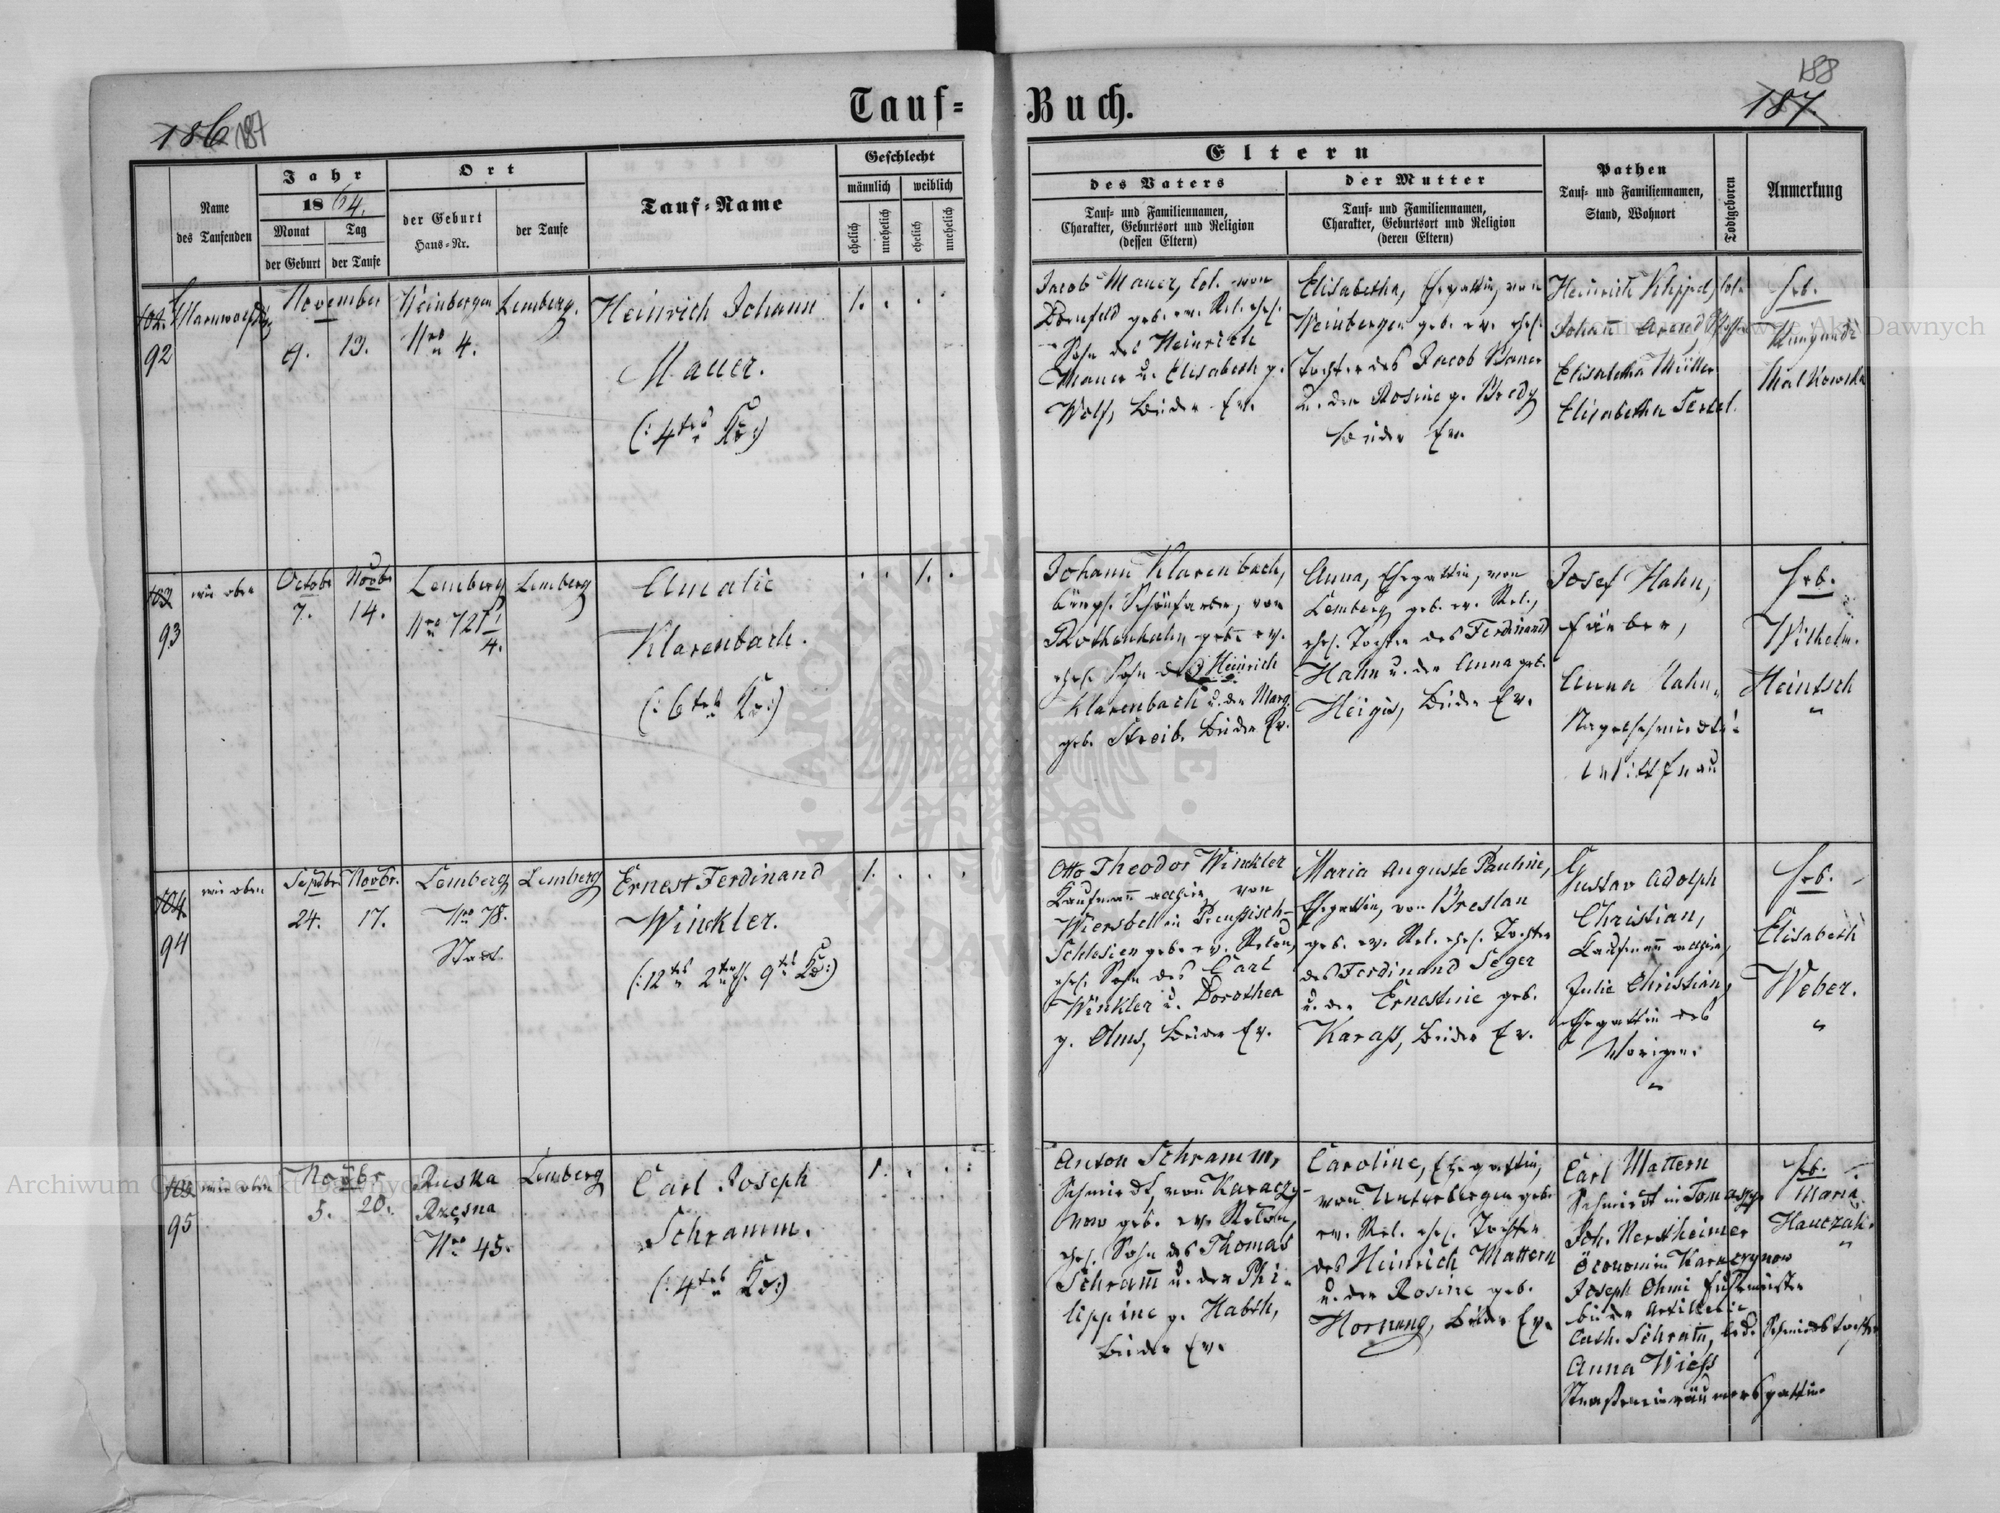 Tauf-Buch.
186 187
187. 188
Name
des Taufenden
Jahr
1864.
Monat
der Geburt
Tag
der Taufe
Ort
der Geburt
Haus-Nr.
der Taufe
Tauf-Name
Geschlecht
männlich
weiblich
ehelich
unehelich
ehelich
unehelich
Eltern
des Vaters
Tauf- und Familiennamen,
Charakter, Geburtsort und Religion
(dessen Eltern)
der Mutter
Tauf- und Familiennamen,
Charakter, Geburtsort und Religion
(deren Eltern)
Pathen
Tauf- und Familiennamen,
Stand, Wohnort
Todtgeboren
Anmerkung
102.
92
November
9. 13.
Weinbergen
Nro 4.
Lemberg.
Heinrich Johann
Mauer.
(: 4tes Kr:)
1. . . .
Jacob Mauer, Col. von
Dornfeld geb. ev. Rel. ehel.
Sohn des Heinrich
Mauer u. Elisabeth g.
Wolf, beide Ev.
Elisabetha, Ehegattin, von
Weinbergen geb. ev. ehel.
Tochter des Jacob Bauer
u. der Rosine g. Bredy
beide Ev.
Heinrich Klippel, Col.
Johann Arend,
Elisabetha Müller
Elisabetha Sertel.
Heb.
Kunegunde
Malkowska
103
93
wie oben
Octobr
7.
Novbr
14.
Lemberg
Nro 721 1/4.
Lemberg
Amalie
Klarenbach.
(: 6tes Kr:)
. . 1. .
Johann Klarenbach,
bürgl. Schönfärber, von
Rothenhahn geb. ev.
ehel. Sohn des Heinrich
Klarenbach u. der Marg.
geb. Streib. beide Ev.
Anna, Ehegattin, von
Lemberg geb. ev. Rel.,
ehel. Tochter des Ferdinand
Hahn u. der Anna geb.
Heigis, beide Ev.
Josef Hahn,
Färber,
Anna Hahn,
Nagelschmiedts-
Heb.
Wilhelm.
Heintsch
"
104.
94
wie oben
Septbr
24.
Novbr.
17.
Lemberg
Nro 78.
Stadt.
Lemberg
Ernest Ferdinand
Winckler.
1. . . .
Otto Theodor Winckler
Kaufmann allhier, von
Wiersbell in Preussisch-
Schlesien geb. ev. Relon,
ehel. Sohn des Carl
Winkler u. Dorothea
g. Olms, beide Ev.
Maria Auguste Pauline,
Ehegattin, von Breslau
geb. ev. Rel. ehel. Tochter
des Ferdinand Seger
u. der Ernestine geb.
Karass, beide Ev.
Gustav Adolph
Christian,
Kaufmann allhier,
Julie Christian,
Ehegattin des
Vorigen.
"
Heb.
Elisabeth
Weber.
"
105
95
wie oben
Novbr
5. 20.
Ruska
Rzęsna
Nro 45.
Lemberg
Carl Joseph
Schramm.
(: 4tes Kr:)
1. . . .
Anton Schramm,
Schmiedt, von Karaczy-
now geb. ev. Relon,
ehel. Sohn des Thomas
Schramm u. der Phi-
lippine g. Habth,
beide Ev.
Caroline, Ehegattin,
von Unterbergen geb.
ev. Rel. ehel. Tochter
des Heinrich Mattern
u. der Rosine geb.
Hornung, beide Ev.
Carl Mattern
Schmiedt in
Joh. Nerstheimer
Öconom in Karaczynow
Joseph Ohmi
bei der Artillerie
Cath. Schram, led. Schmiedstochter
Anna Wiess
Straßeneinräumersgattin.
Heb.
Maria
Hauczak.
"
Archiwum Główne Akt Dawnych